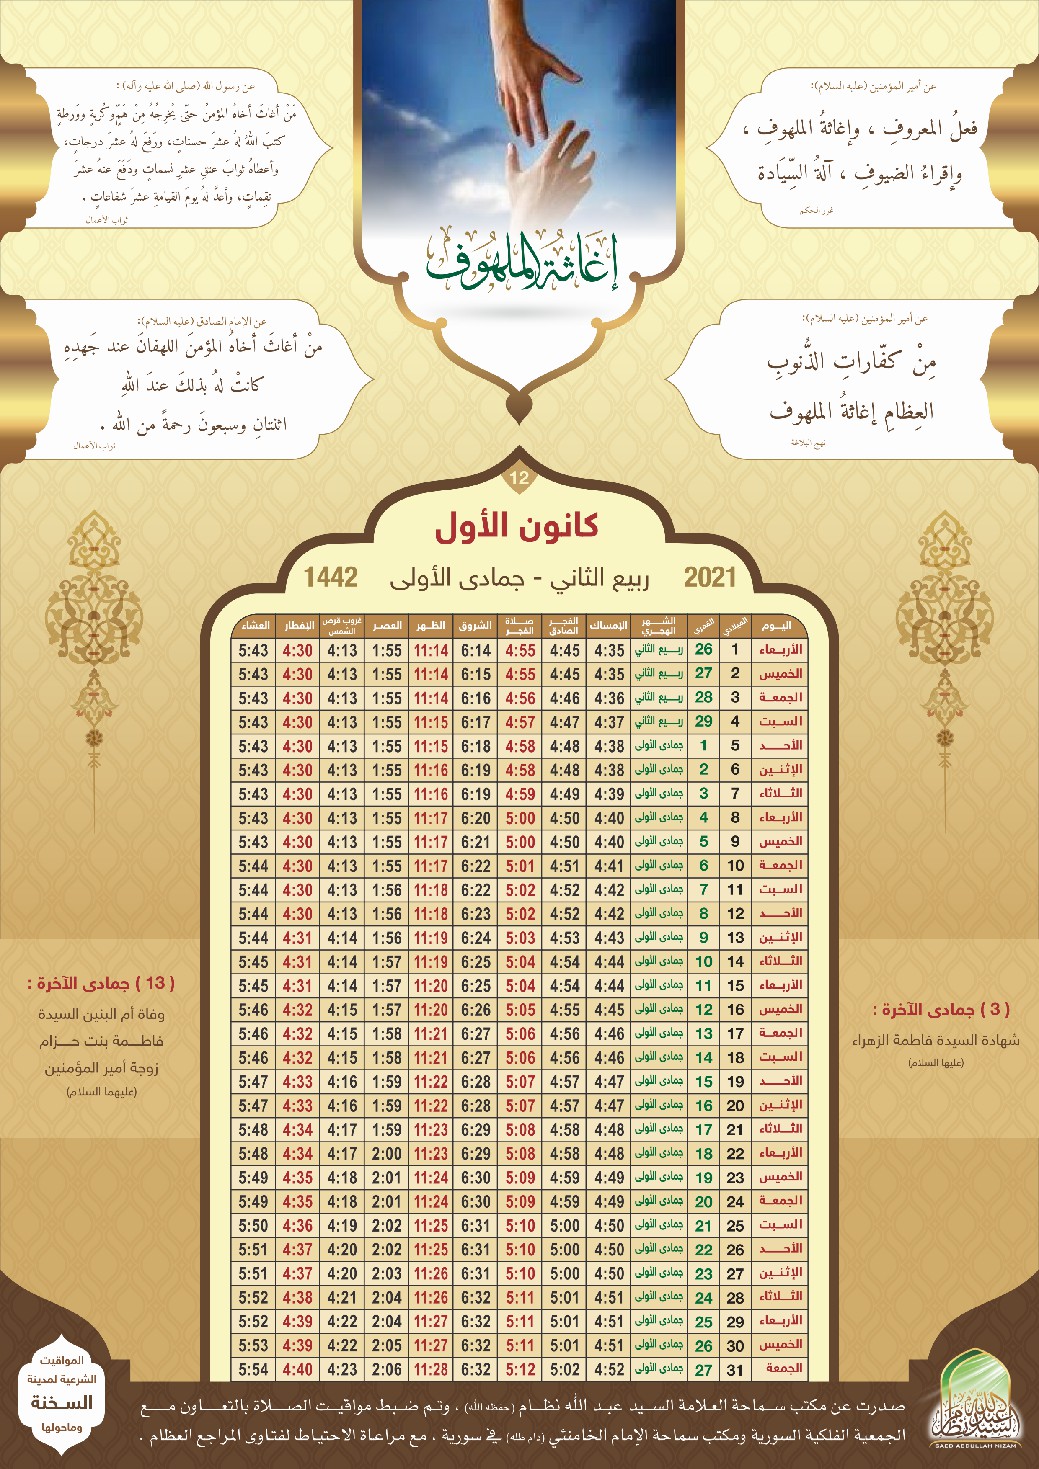 عن أمير المؤمنين (عليه السلام):
فعلُ المعروفِ ، وإغاثةُ الملهوفِ ،
وإقراءُ الضيوفِ ، آلةُ السِّيَادة
غرر الحكم
عن رسول الله (صلى الله عليه وآله) :
مَنْ أغاثَ أخاهُ المؤمنُ حتّى يُخرِجُهُ مِنْ هَمٍّ وكُربةٍ وورطةٍ
كتبَ اللهُ لهُ عشرَ حسناتٍ، ورفَعَ لهُ عشرَ درجاتٍ،
وأعطاهُ ثوابَ عتقِ عشرِ نسماتٍ ودَفَعَ عنهُ عشرَ
نِقِماتٍ، وأعدَّ لهُ يومَ القيامةِ عشرَ شفاعاتٍ .
ثواب الأعمال
إغاثة الملهوف
عن أمير المؤمنين (عليه السلام):
مِنْ كفّاراتِ الذُّنوبِ
العِظامِ إغاثةُ الملهوف
نهج البلاغة
عن الامام الصادق (عليه السلام):
منْ أغاثَ أخاهُ المؤمنَ اللهفانَ عند جَهدِهِ
كانتْ لهُ بذلكَ عندَ اللهِ
اثنتانِ وسبعونَ رحمةً من الله .
ثواب الأعمال
12
كانون الأول
2021 ربيع الثاني - جمادى الأولى 1442
اليوم الميلادي القمري الشهر الهجري الإمساك الفجر الصادق صلاة الفجر الشروق الظهر العصر غروب قرص الشمس الإفطار العشاء
الأربعاء 1 26 ربيع الثاني 4:35 4:45 4:55 6:14 11:14 1:55 4:13 4:30 5:43
الخميس 2 27 ربيع الثاني 4:35 4:45 4:55 6:15 11:14 1:55 4:13 4:30 5:43
الجمعة 3 28 ربيع الثاني 4:36 4:46 4:56 6:16 11:14 1:55 4:13 4:30 5:43
السبت 4 29 ربيع الثاني 4:37 4:47 4:57 6:17 11:15 1:55 4:13 4:30 5:43
الأحد 5 1 جمادى الأولى 4:38 4:48 4:58 6:18 11:15 1:55 4:13 4:30 5:43
الإثنين 6 2 جمادى الأولى 4:38 4:48 4:58 6:19 11:16 1:55 4:13 4:30 5:43
الثلاثاء 7 3 جمادى الأولى 4:39 4:49 4:59 6:19 11:16 1:55 4:13 4:30 5:43
الأربعاء 8 4 جمادى الأولى 4:40 4:50 5:00 6:20 11:17 1:55 4:13 4:30 5:43
الخميس 9 5 جمادى الأولى 4:40 4:50 5:00 6:21 11:17 1:55 4:13 4:30 5:43
الجمعة 10 6 جمادى الأولى 4:41 4:51 5:01 6:22 11:17 1:55 4:13 4:30 5:44
السبت 11 7 جمادى الأولى 4:42 4:52 5:02 6:22 11:18 1:56 4:13 4:30 5:44
الأحد 12 8 جمادى الأولى 4:42 4:52 5:02 6:23 11:18 1:56 4:13 4:30 5:44
الإثنين 13 9 جمادى الأولى 4:43 4:53 5:03 6:24 11:19 1:56 4:14 4:31 5:44
الثلاثاء 14 10 جمادى الأولى 4:44 4:54 5:04 6:25 11:19 1:57 4:14 4:31 5:45
الأربعاء 15 11 جمادى الأولى 4:44 4:54 5:04 6:25 11:20 1:57 4:14 4:31 5:45
الخميس 16 12 جمادى الأولى 4:45 4:55 5:05 6:26 11:20 1:57 4:15 4:32 5:46
الجمعة 17 13 جمادى الأولى 4:46 4:56 5:06 6:27 11:21 1:58 4:15 4:32 5:46
السبت 18 14 جمادى الأولى 4:46 4:56 5:06 6:27 11:21 1:58 4:15 4:32 5:46
الأحد 19 15 جمادى الأولى 4:47 4:57 5:07 6:28 11:22 1:59 4:16 4:33 5:47
الإثنين 20 16 جمادى الأولى 4:47 4:57 5:07 6:28 11:22 1:59 4:16 4:33 5:47
الثلاثاء 21 17 جمادى الأولى 4:48 4:58 5:08 6:29 11:23 1:59 4:17 4:34 5:48
الأربعاء 22 18 جمادى الأولى 4:48 4:58 5:08 6:29 11:23 2:00 4:17 4:34 5:48
الخميس 23 19 جمادى الأولى 4:49 4:59 5:09 6:30 11:24 2:01 4:18 4:35 5:49
الجمعة 24 20 جمادى الأولى 4:49 4:59 5:09 6:30 11:24 2:01 4:18 4:35 5:49
السبت 25 21 جمادى الأولى 4:50 5:00 5:10 6:31 11:25 2:02 4:19 4:36 5:50
الأحد 26 22 جمادى الأولى 4:50 5:00 5:10 6:31 11:25 2:02 4:20 4:37 5:51
الإثنين 27 23 جمادى الأولى 4:50 5:00 5:10 6:31 11:26 2:03 4:20 4:37 5:51
الثلاثاء 28 24 جمادى الأولى 4:51 5:01 5:11 6:32 11:26 2:04 4:21 4:38 5:52
الأربعاء 29 25 جمادى الأولى 4:51 5:01 5:11 6:32 11:27 2:04 4:22 4:39 5:52
الخميس 30 26 جمادى الأولى 4:51 5:01 5:11 6:32 11:27 2:05 4:22 4:39 5:53
الجمعة 31 27 جمادى الأولى 4:52 5:02 5:12 6:32 11:28 2:06 4:23 4:40 5:54
( 3 ) جمادى الآخرة :
شهادة السيدة فاطمة الزهراء
(عليها السلام)
( 13 ) جمادى الآخرة :
وفاة أم البنين السيدة
فاطمة بنت حزام
زوجة أمير المؤمنين
(عليهما السلام)
المواقيت
الشرعية لمدينة
السخنة
وماحولها
صدرت عن مكتب سماحة العلامة السيد عبد الله نظام (حفظه الله) ، وتم ضبط مواقيت الصلاة بالتعاون مع
الجمعية الفلكية السورية ومكتب سماحة الإمام الخامنئي (دام ظله) في سورية ، مع مراعاة الاحتياط لفتاوى المراجع العظام .
السيد عبد الله نظام
SAED ABDULLAH NIZAM